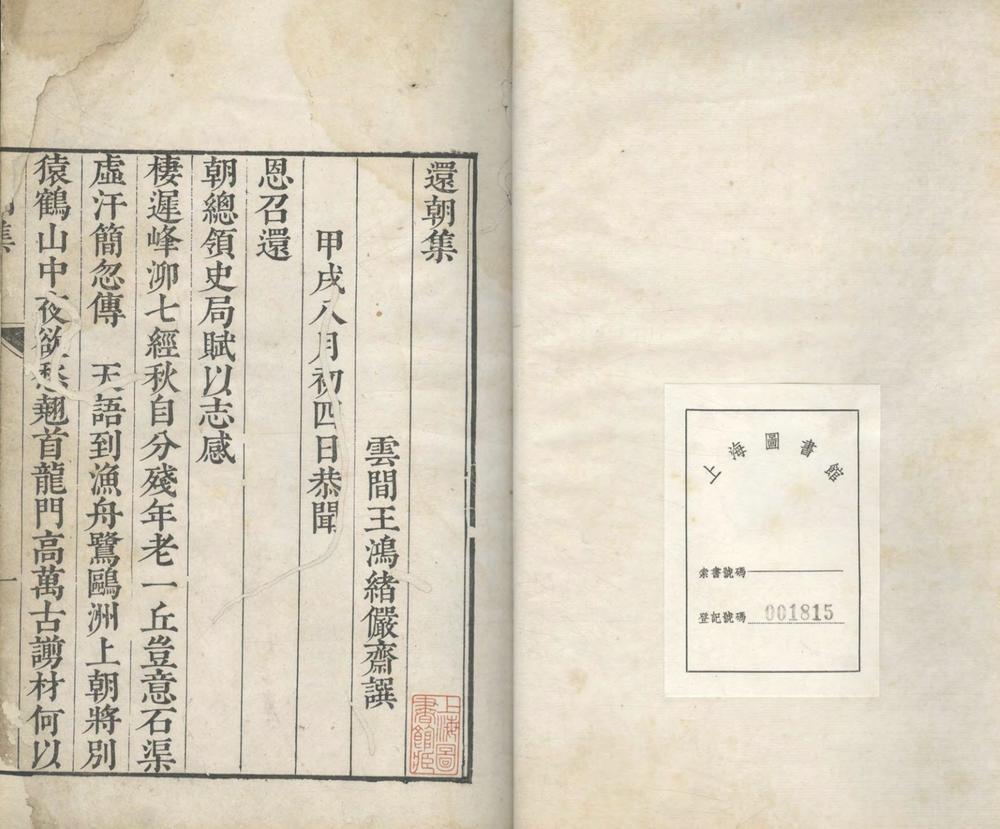 上海圖書館
索書號碼
登記號碼 001815
還朝集
雲間王鴻緒儼齋譔
甲戌八月初四日恭聞
恩召還
朝總領史局賦以志感
棲遲峰泖七經秋自分殘年老一丘豈意石渠
虛汗簡忽傳 天語到漁舟鷺鷗洲上朝將別
猿鶴山中夜欲愁翹首龍門高萬古謭材何以
集
一
上海圖書館藏